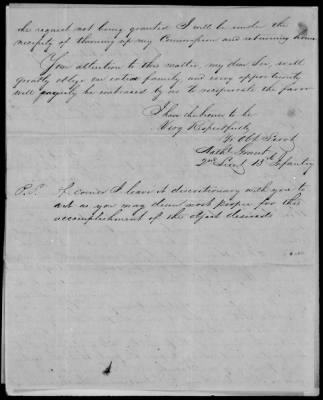 the request not being granted I will be under the
necessity of throwing up my Commission and returning home.
Your attention to this matter, my dear Sir, will
greatly oblige an entire family and every opportunity
will be embraced by me to reciprocate the favor
I have the honor to be
Very Respectfully
Yr Obt Servt
Nathl Grant
2nd Lieut 13th Infantry
P.S. Of course I leave it discretionary with you to
act as you may deem most proper for the
accomplishment of the object desired